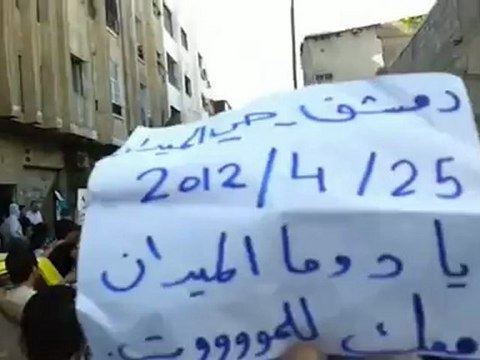 دمشق - حي الميدان
2012/4/25
يا دوما الميدان
معك للموووووت